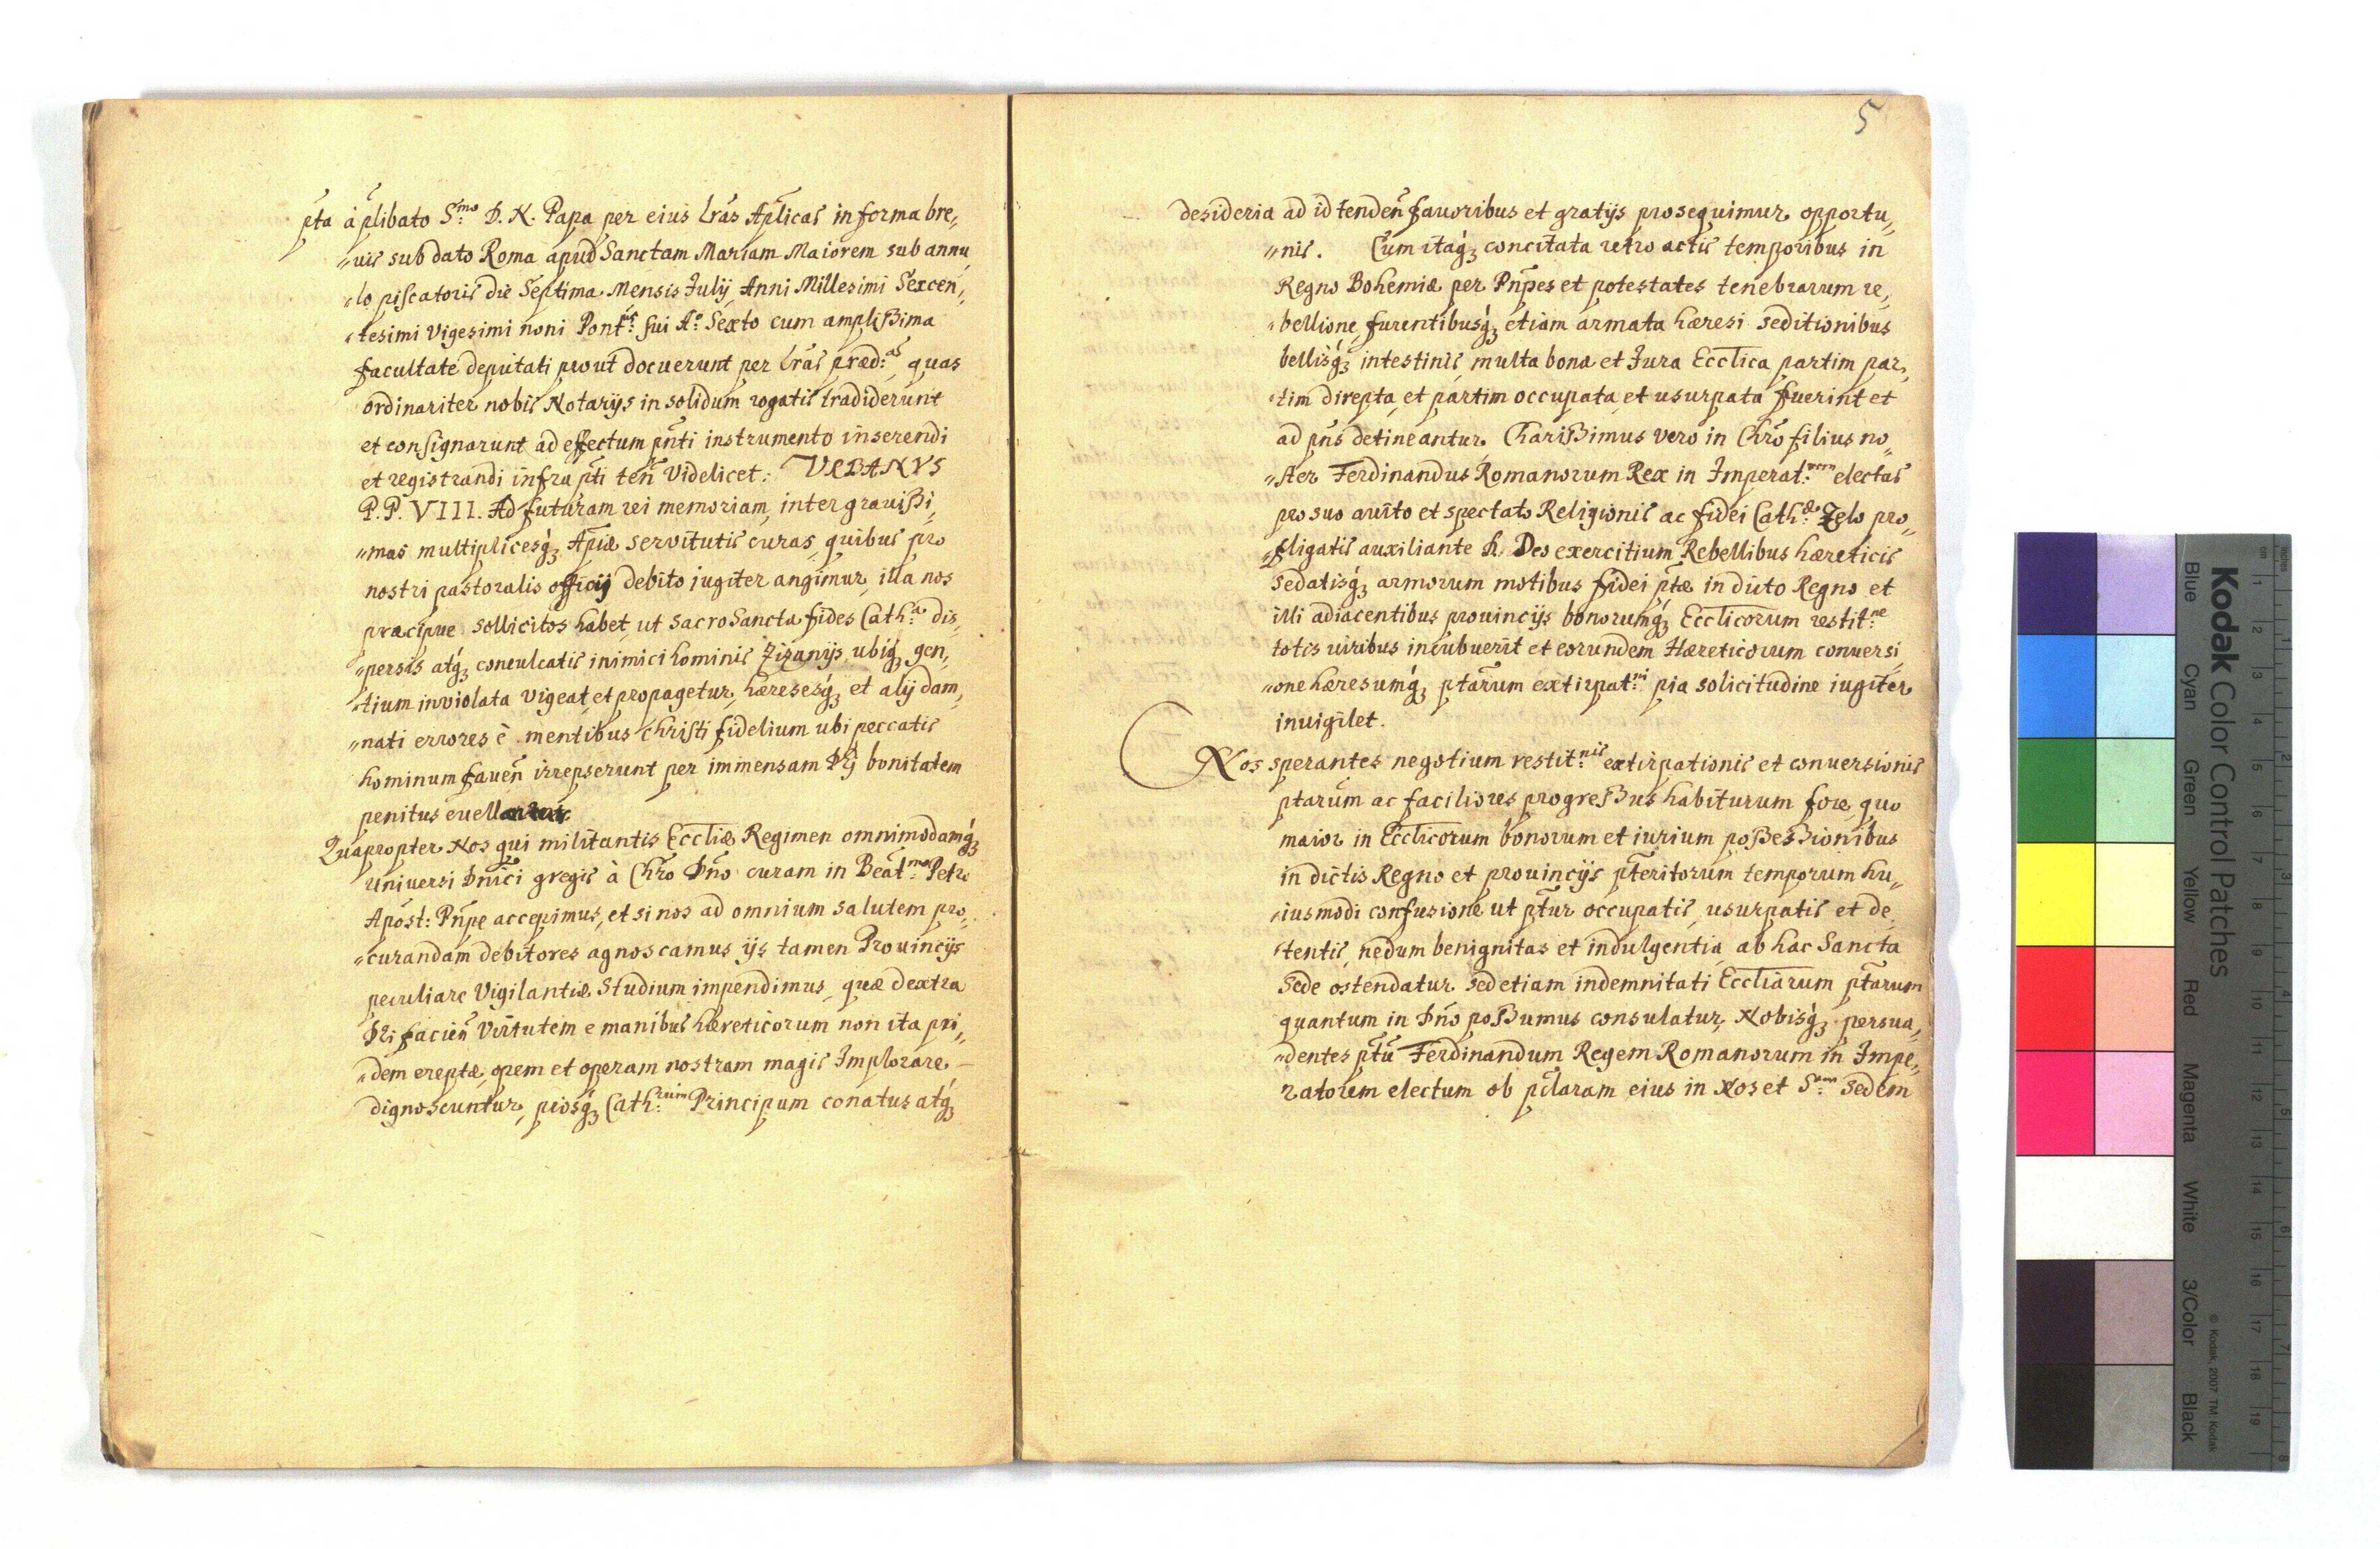 pt̃a à p̃libato S.mo D. N. Papa per eius lr̃as Ap̃licas in forma bre„
„uis sub dato Roma apud Sanctam Mariam Maiorem sub annu
„lo piscatoris die Septima Mensis Julij Anni Millesimi Sexcen„
„tesimi Vigesimi noni Pont.us sui A.o Sexto cum amplißima
facultate deputati prout docuerunt per lr̃as præd.as quas
ordinariter nobis Notarijs in solidum rogatis tradiderunt
et consignarunt ad effectum pñti instrumento inserendi
et registrandi infra pt̃i teñ Videlicet: VRBANVS
P.P. VIII. Ad futuram rei memoriam, inter grauißi„
„mas multiplicesq́ꝫ Ap̃læ servitutis curas, quibus pro
nostri pastoralis officij debito iugiter angimur, illa nos
præcipue sollicitos habet, ut sacroSancta fides Cath.a dis„
„persis atq́ꝫ conculcatis inimici hominis Zizanijs, ubiq́ꝫ gen„
„tium inviolata vigeat, et propagetur, hæresesq́ꝫ et alij dam„
„nati errores è mentibus Christi fidelium ubi peccatis
hominum faueñ irrepserunt per immensam Dĩ bonitatem
penitus euell
Quapropter Nos qui militantis Eccl̃iæ Regimen omnimodamq́ꝫ
Universi Dñici gregis à Chr̃o Dño curam in Beat.mo Petro
Apost: Pñpe accepimus, et si nos ad omnium salutem pro„
„curandam debitores agnoscamus ijs tamen Prouincijs
peculiare Vigilantiæ Studium impendimus, quæ dextra
Dĩ facieñ Virtutem e manibus hæreticorum non ita pri„
„dem ereptæ, opem et operam nostram magis Implorare
dignoscuntur, piosq́ꝫ Cath.rum Principum conatus atq́ꝫ
5
desideria ad id tendeñ fauoribus et gratijs prosequimur opportu„
„nis. Cum itaq́ꝫ concitata retro actis temporibus in
Regno Bohemiæ per Pñpes et potestates tenebrarum re„
„bellione, furentibusq́ꝫ etiam armata hæresi seditionibus
bellisq́ꝫ intestinis, multa bona et Jura Eccl̃ica partim par„
„tim direpta, et partim occupata, et usurpata fuerint et
ad pñs detineantur. Charißimus vero in Chr̃o filius no„
„ster Ferdinandus Romanorum Rex in Imperat.rem electus
pro suo auito et spectato Religionis ac fidei Cath.æ Zelo pro„
„fligatis auxiliante Deo exercitium Rebellibus hæreticis
sedatisq́ꝫ armorum motibus fidei pt̃æ in dicto Regno et
illi adiacentibus prouincijs bonorumq́ꝫ Eccl̃icorum restit.ne
totis uiribus incubuerit et eorundem Hæreticorum conuersi
„one hæresumq́ꝫ pt̃arum extirpat.ni pia solicitudine iugiter
inuigilet.
Nos sperantes negotium restit.nis extirpationis et conuersionis
pt̃arum ac faciliores progreßus habiturum fore, quo
maior in Eccl̃icorum bonorum et iurium poßeßionibus
in dictis Regno et prouincijs pt̃eritorum temporum hu„
„iusmodi confusione ut pt̃ur occupatis, usurpatis et de
„tentis, nedum benignitas et indulgentia ab hac Sancta
Sede ostendatur sed etiam indemnitati Eccl̃iarum pt̃arum
quantum in Dño poßumus consulatur, Nobisq́ꝫ persua„
„dentes pt̃u Ferdinandum Regem Romanorum in Impe„
ratorem electum ob p̃claram eius in Nos et S.am Sedem
Kodak Color Control Patches
© Kodak, 2007 TM: Kodak
Blue Cyan Green Yellow Red Magenta White 3/Color Black